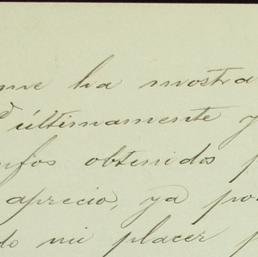 me ha mostra
últimamente y
nfos obtenidos p
aprecio, ya po
do mi placer p